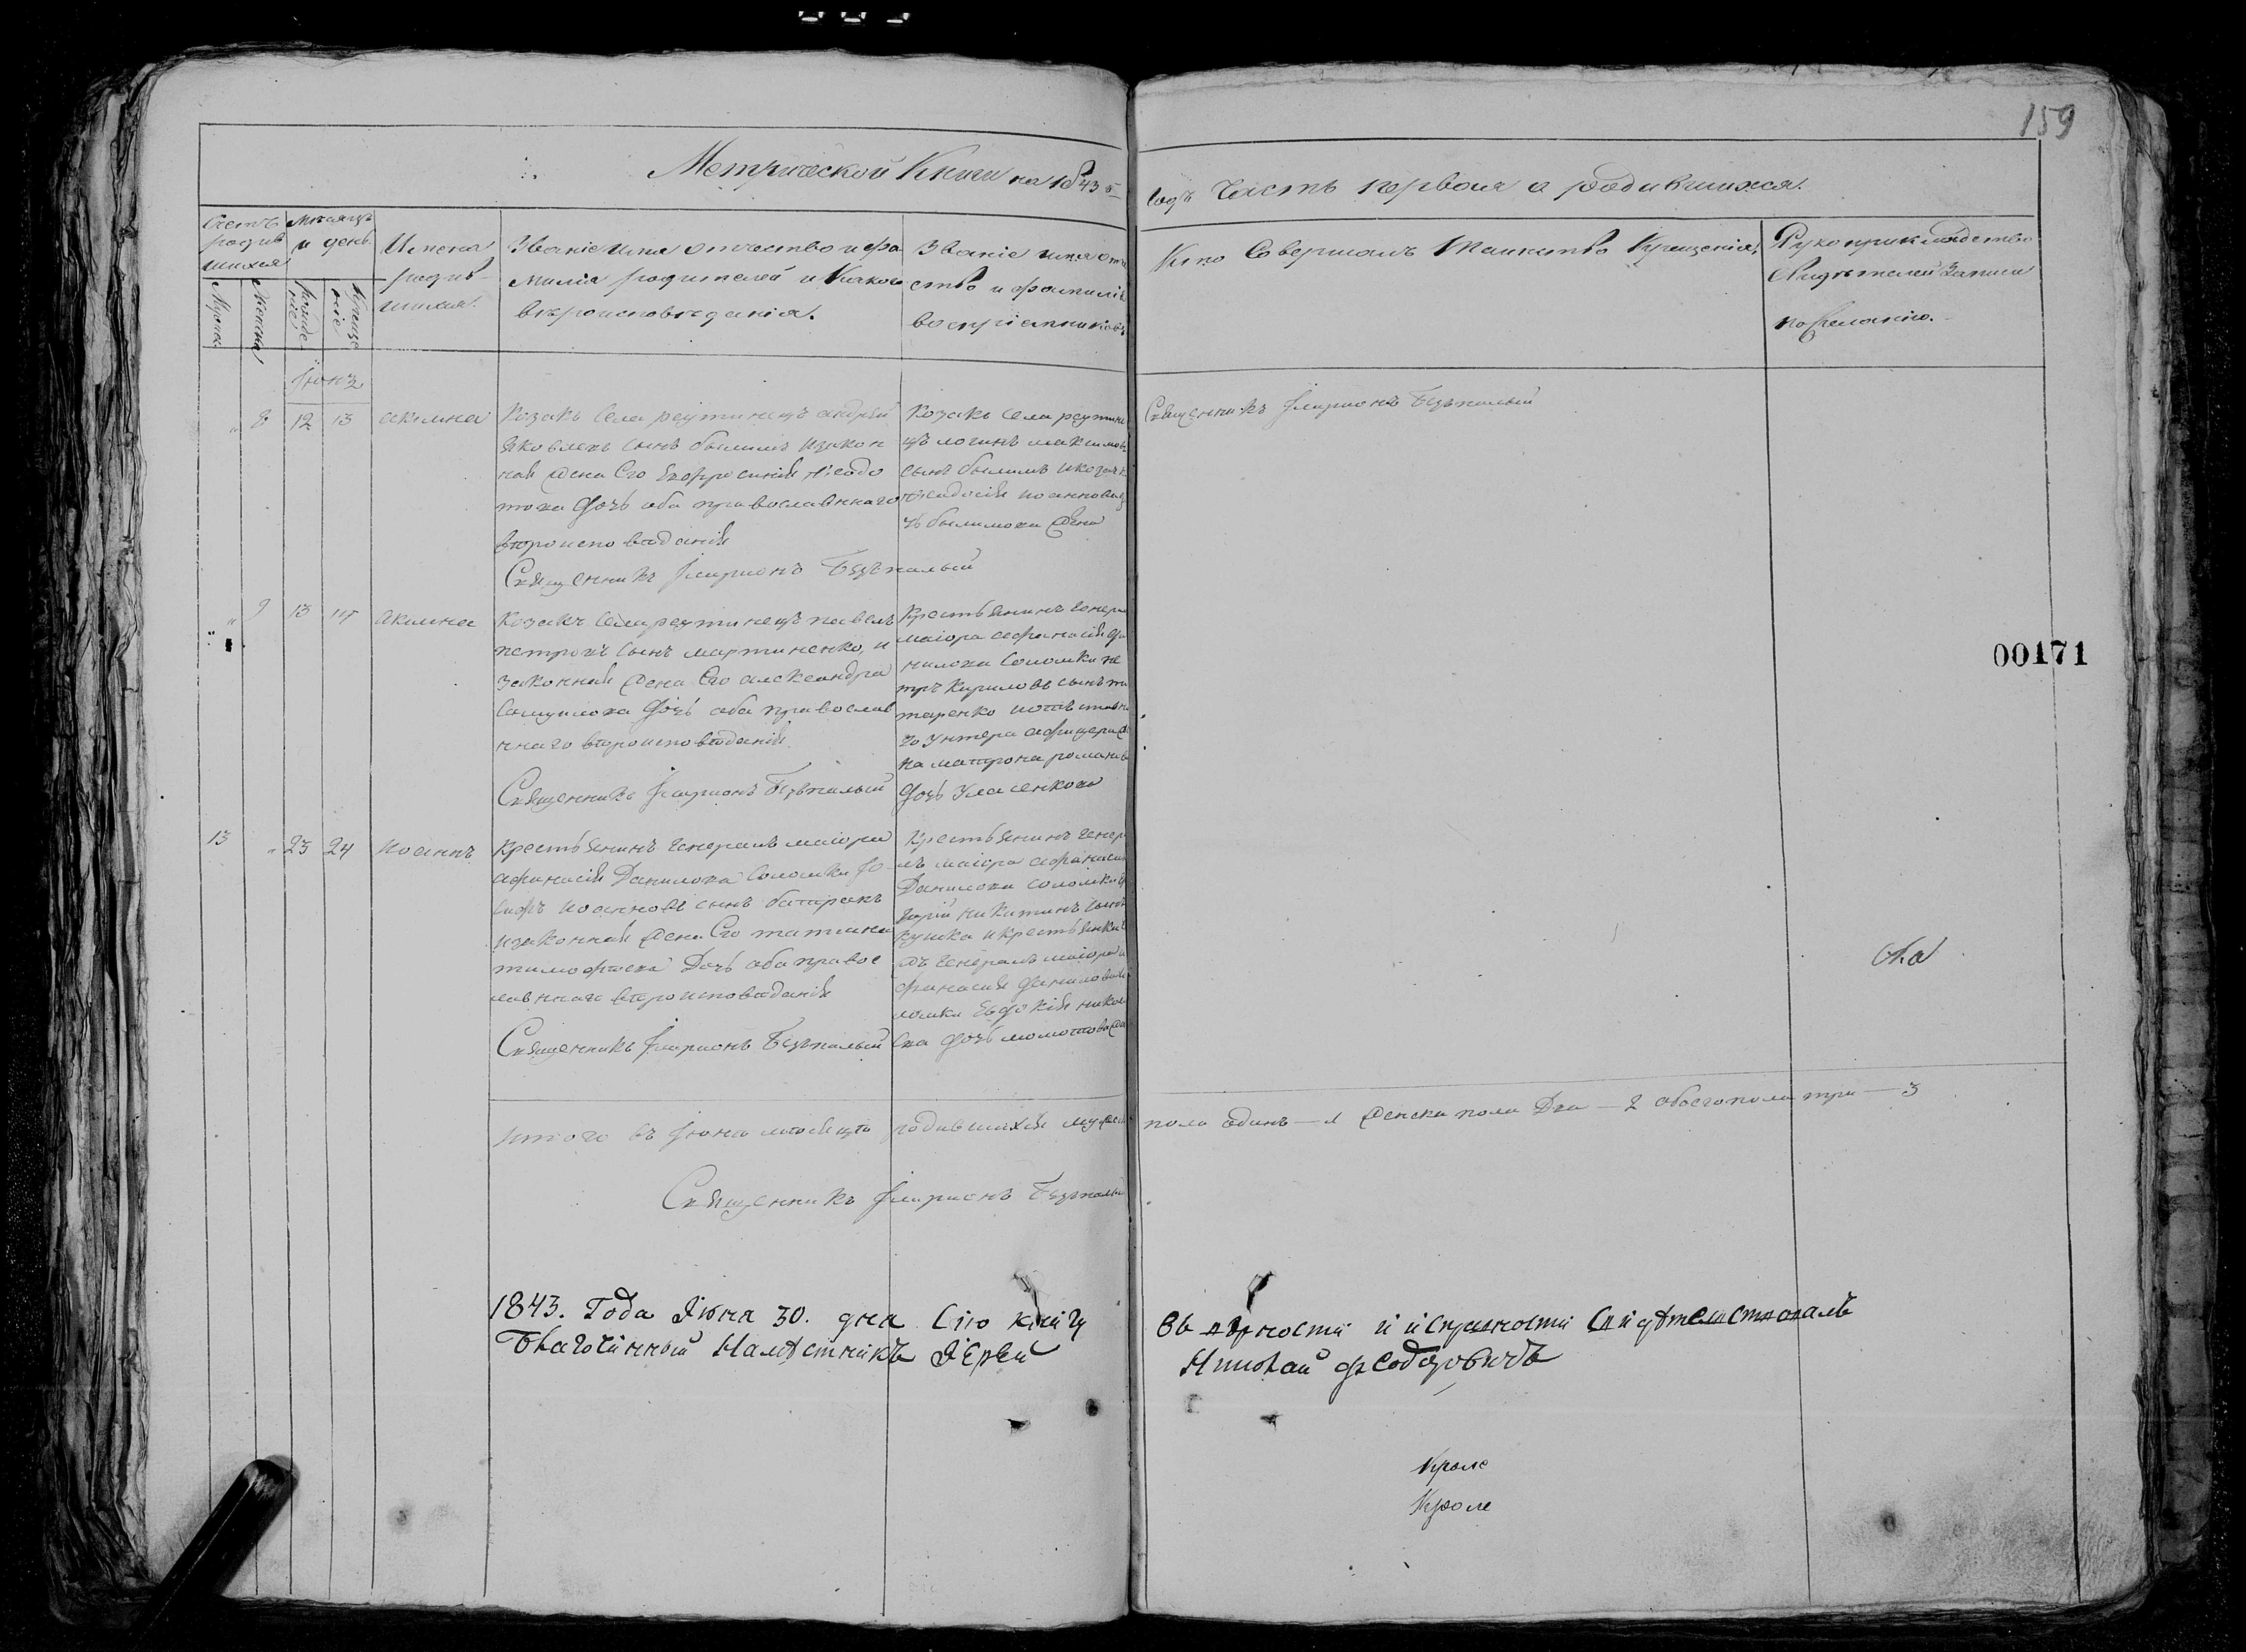 159
Метрической Книги на 1843й
годъ Часть первая о родившихся.
Счетъ родившихся
Мужеска
Женска
Мѣсяцъ и день.
рожденіе
крещеніе
Имена
родив-
шихся.
Званіе имя отчество и фа
милія родителей и Какого
вѣроисповѣданія.
Званіе имя отче
ство и фамилія
воспріемниковъ
Кто Совершалъ Таинство Крещенія,
Рукоприкладство
Свидѣтелей Записи
по Желанію.
Іюнь
8 12 13 акилина
Козакъ Села реутинецъ андрей
Яковлевъ сынъ былимъ изакон
ная жена Его Евфросинія Ѳеодо
това дочъ оба православнаго
вѣроисповѣданія
Священникъ Іларионъ Безпалый
Козакъ села реутине
цъ логинъ максимовъ
сынъ былимъ икозачк
Ѳеодосія иоаннова до
чъ былимова жена
Священникъ Іларионъ Безпалый
9 13 14 акилина
Козакъ села реутинецъ павелъ
петровъ сынъ мартиненко, и
законная жена Его александра
Самуилова дочъ оба православ
ннаго вѣроисповѣданія
Священникъ Іларионъ Безпалый
Крестьянинъ Генерал
маіора афанасія да
нилова Соломки пе
тръ Кириловъ сынъ ти
таренко иотставна
го унтера афицера же
на матрона романова
дочъ Уласенкова
00171
13 23 24 Иоаннъ
Крестьянинъ Генералъ маіора
афанасія Данилова Соломки Ио
сифъ иоанновъ сынъ батракъ
изаконная жена Его татиана
тимофѣева Дочъ оба правос
лавнаго вѣроисповѣданія
Священникъ Іларионъ Безпалый
Крестьянинъ Генера
лъ маіора афанасія
Данилова соломки
никитинъ сынъ
Кушка икрестьянка
Генералъ маіора а
фанасія данилова со
ломки Евдокія никола
Ева дочъ
итого въ Іюнѣ мѣсяцѣ родившихся мужеск
пола одинъ — 1 женска пола Два — 2 обоего пола три — 3
Священникъ Іларионъ Безпалый
1843. Года Июня 30. дня Сію книгу
вѣ вѣрности и исправности Свидѣтелствовалъ
Благочинный Намѣстникъ Иерей
Николай Ѳеодоровичъ
Кроле
Кроле